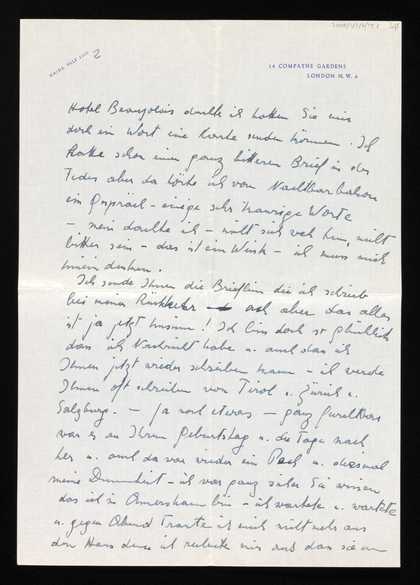 2
14 COMPAYNE GARDENS
LONDON N.W. 6
Hotel Beaujolais dachte ich hätten Sie mir
doch ein Wort eine Karte senden können. Ich
hatte schon einen ganz bitteren Brief in der
aber da hörte ich vom Nachbarbalkon
ein Gespräch - einige sehr traurige Worte
- nein dachte ich - nicht sich weh tun, nicht
bitter sein - das ist ein Wink - ich muss mich
hinein denken.
Ich sende Ihnen die Brieflein die ich schrieb
bei meiner Rückkehr - ach aber das alles
ist ja jetzt ! Ich bin doch so glücklich
dass ich Nachricht habe u. auch dass ich
Ihnen jetzt wieder schreiben kann - ich werde
Ihnen oft schreiben von Tirol u. Zürich u.
Salzburg. - Ja noch etwas - ganz furchtbar
war es an Ihrem Geburtstag u. die Tage nach
her u. auch da war wieder ein Pech u. diesmal
meine Dummheit - ich war ganz sicher Sie wissen
dass ich in Amersham bin - ich wartete u. wartete
u. gegen Abend traute ich mich nicht mehr aus
dem Haus denn ich mir aus dass sie am